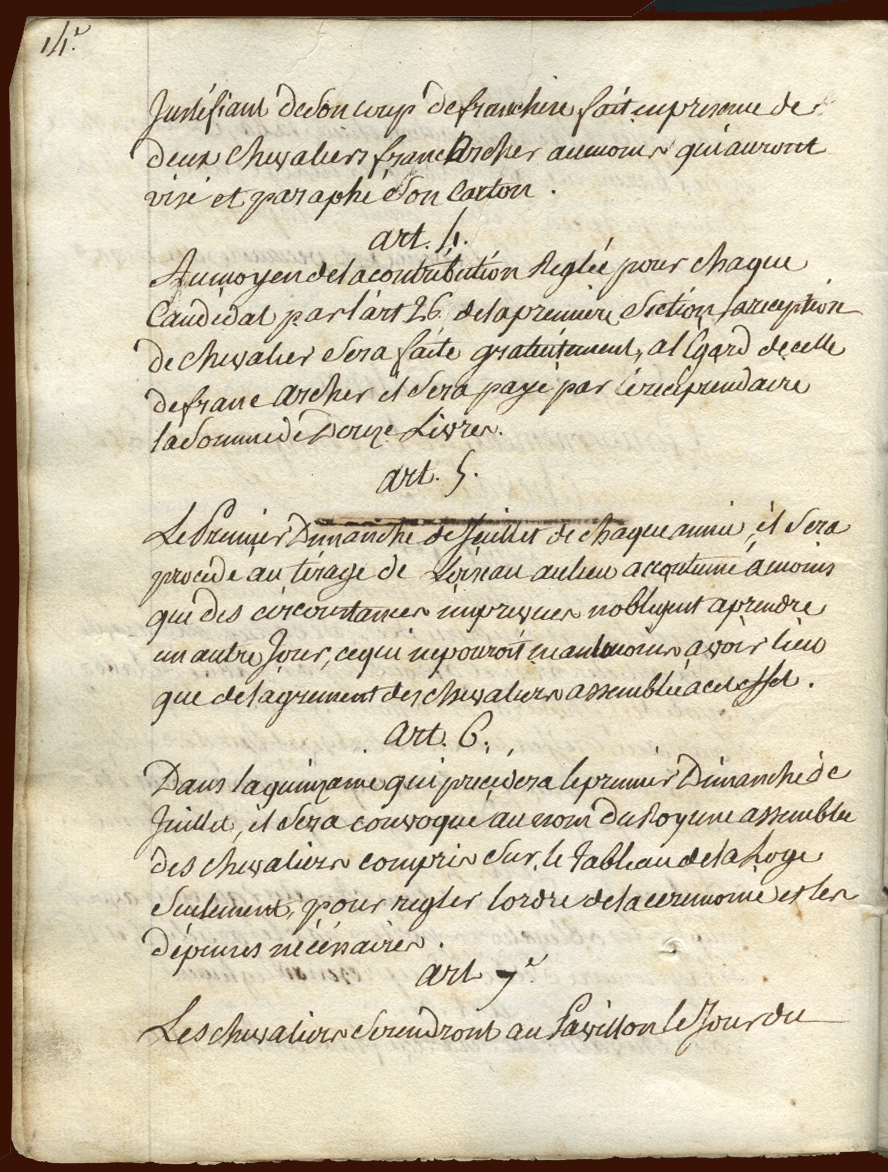 14.e
Justifiant de Son coup de franchise fait en presence de
deux Chevaliers franc Archer aumoins qui auront
visé et paraphé Son Carton.
art. 4.
Aumoyen de la contribution Reglée pour chaque
Candidat par l'art 26. de la premiere Section la reception
de chevalier Sera faite gratuitement, a l'Egard de celle
de franc Archer il Sera payé par le recipiendaire
la Somme de Douze Livres.
art. 5.
Le Premier Dimanche de Juillet de chaque année, il Sera
procédé au tirage de L'oiseau au lieu acoutumé à moins
que des circonstances imprevues n'obligent a prendre
un autre Jour, ce qui ne pouroit neantmoins avoir lieu
que de l'agrement des chevaliers assemblé a cet effet.
Art. 6.
Dans la quinzaine qui precedera le premier Dimanche de
Juillet, il Sera convoqué au nom du Roy une assemblée
des chevaliers compris Sur le tableau de la Loge
Seulement, pour regler l'ordre de la ceremonie et les
dépenses nécéssaires.
art 7e
Les chevaliers Serendront au Pavillon le Jour du